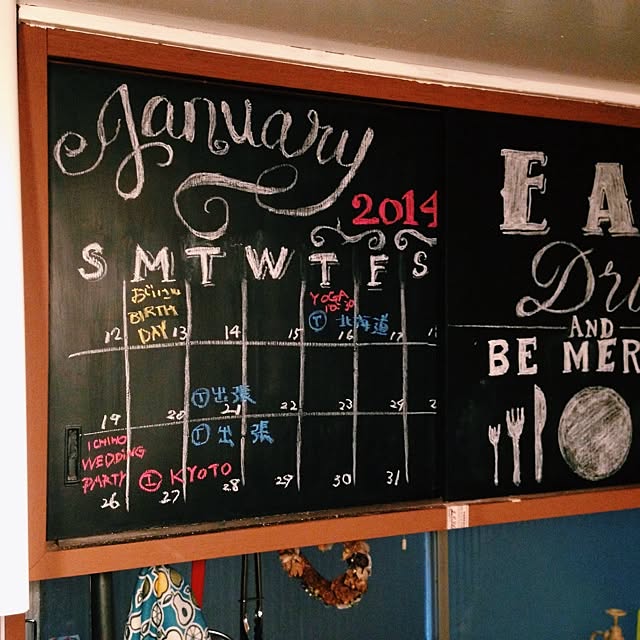 January
2014
S M T W T F S
おじいちゃん
BIRTH
DAY
YOGA
10:30
Ⓣ 北海道
12 13 14 15 16 17
Ⓣ 出張
19 20 21 22 23 24
ICHIHO
WEDDING
PARTY
Ⓣ 出張
Ⓘ KYOTO
26 27 28 29 30 31
EA
Dri
AND
BE MER